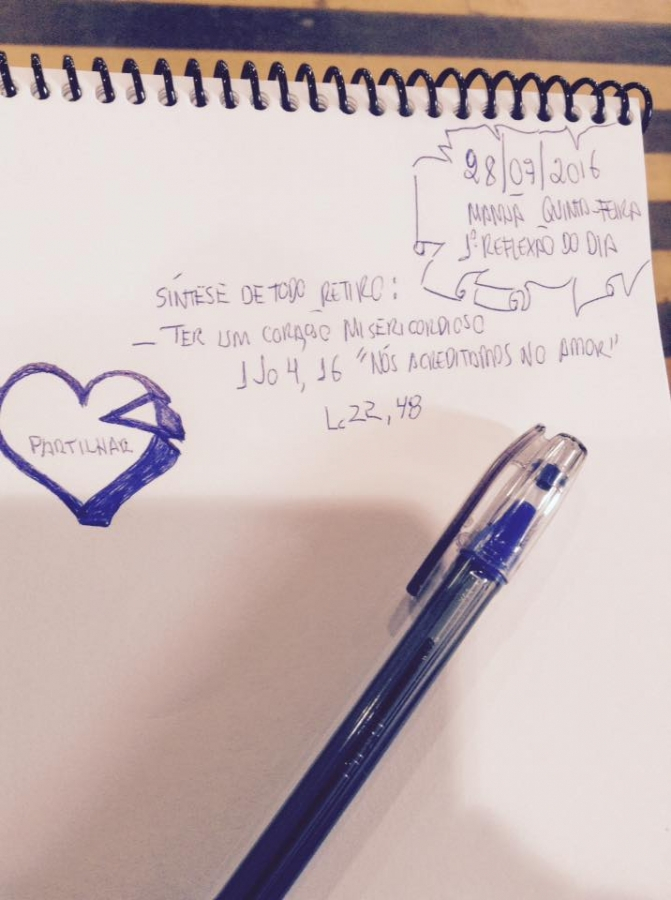 28/07/2016
MANHÃ QUINTA-FEIRA
1ª REFLEXÃO DO DIA
SÍNTESE DE TODO RETIRO:
– TER UM CORAÇÃO MISERICORDIOSO
1 Jo 4, 16 "NÓS ACREDITAMOS NO AMOR"
Lc 22, 48
PARTILHAR